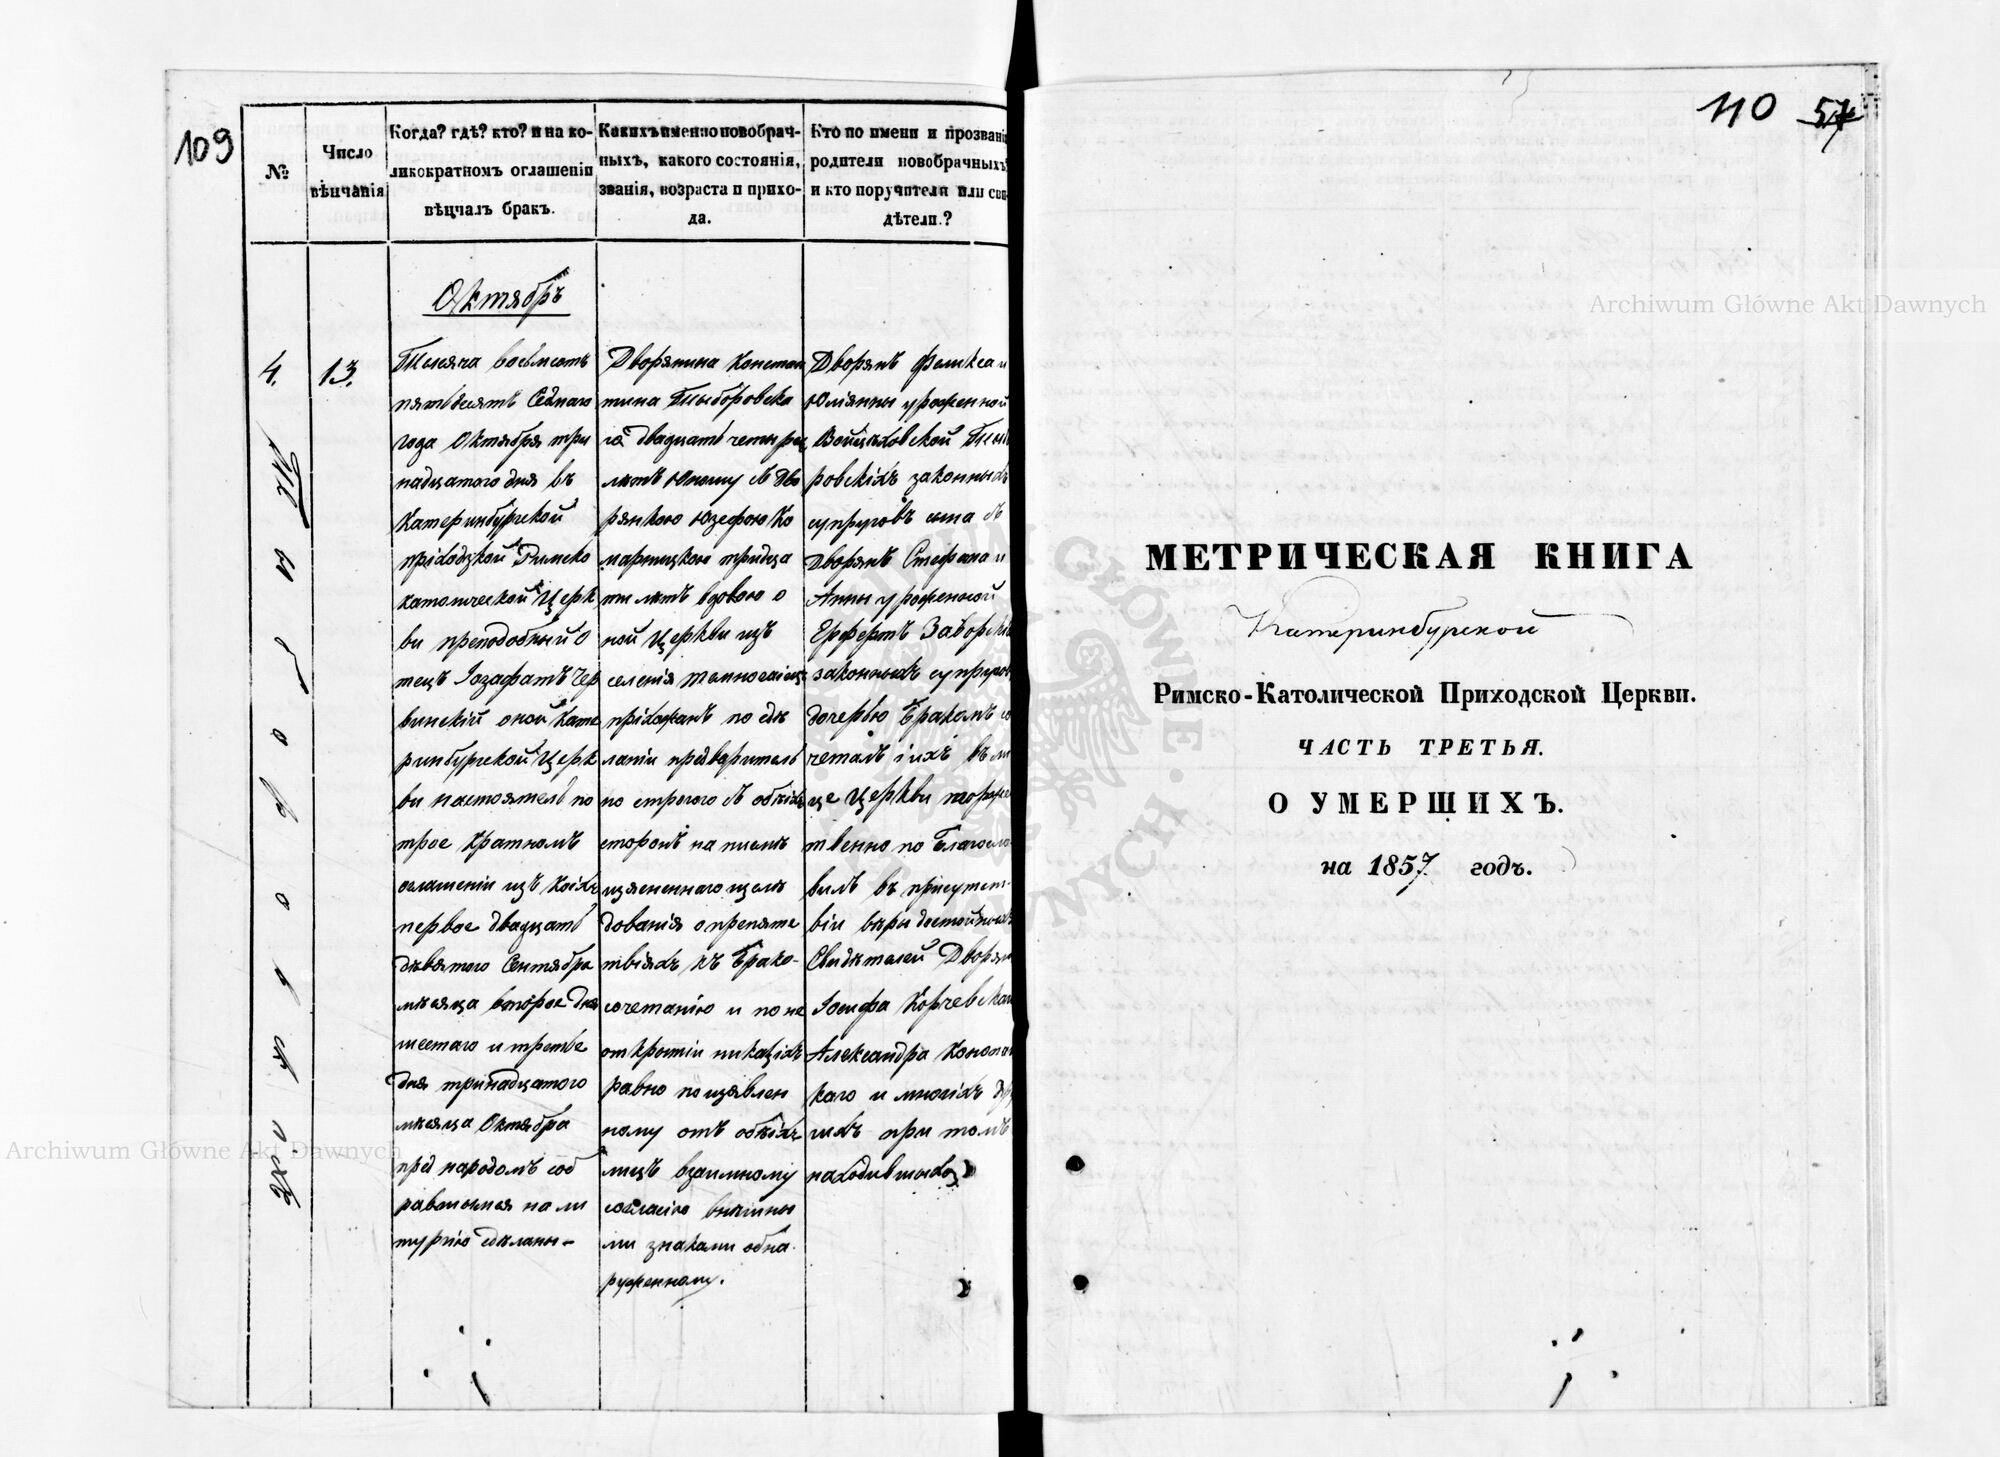 109
№
Число
вѣнчанія
Когда? гдѣ? кто? и на ко-
ликократномъ оглашеніи
вѣнчалъ бракъ.
Какихъ именно новобрач-
ныхъ, какого состоянія,
званія, возраста и прихо-
да.
Кто по имени и прозванію
родители новобрачныхъ
и кто поручители или сви-
дѣтели.?
Октябрь
4.
13.
Тысяча восемьсотъ
пятьдесятъ Седмаго
года Октября три
надцатаго дня въ
Катеринбургской
приходской Римско
католической Церк
ви преподобный о
тецъ Іозафатъ
винскій оной Кате
ринбургской Церк
ви настоятель по
трое кратномъ
оглашеніи изъ коихъ
первое двадцать
девятого Сентября
мѣсяца второе дня
шестаго и третье
дня тринадцатого
мѣсяца Октября
пред народомъ соб
равшымся на ли
тургію сдѣланы-
Дворянина Констан
тина Тыборовска
го двадцать четыре
лѣтъ Юношу съ Дво
рянкою Юзефою Ко
марницкою тридца
ти лѣтъ вдовою о
ной Церкви изъ
селенія
прихожанъ по сдѣ
ланіи предваритель
но строгого съ обѣихъ
сторонъ на писмѣ
изясненнаго изслѣ
дованія о препятс
твіяхъ къ Брако-
сочетанію и по не
открытіи никакихъ
равно по изявлен
ному отъ обѣихъ
лицъ взаимному
согласію внѣшны
ми знаками обна
руженному.
Дворянъ Феликса и
Юліянны урожденной
Войцѣховской Тыбо
ровскихъ законныхъ
супруговъ сына съ
Дворянъ Стефана и
Анны урожденной
Заборскихъ
законныхъ супругов
дочерью Бракомъ со
четалъ и ихъ въ ли
це Церкви торжес
твенно по Благосло
вилъ въ присутст
віи вѣры достойныхъ
Свидѣтелей Дворян
Іосифа Корчевскаго
Александра
каго и многихъ дру
гихъ при томъ
находившыхся
110 57
МЕТРИЧЕСКАЯ КНИГА
Катеринбурской
Римско-Католической Приходской Церкви.
ЧАСТЬ ТРЕТЬЯ.
О УМЕРШИХЪ.
на 1857 годъ.
Archiwum Główne Akt Dawnych
Archiwum Główne Akt Dawnych